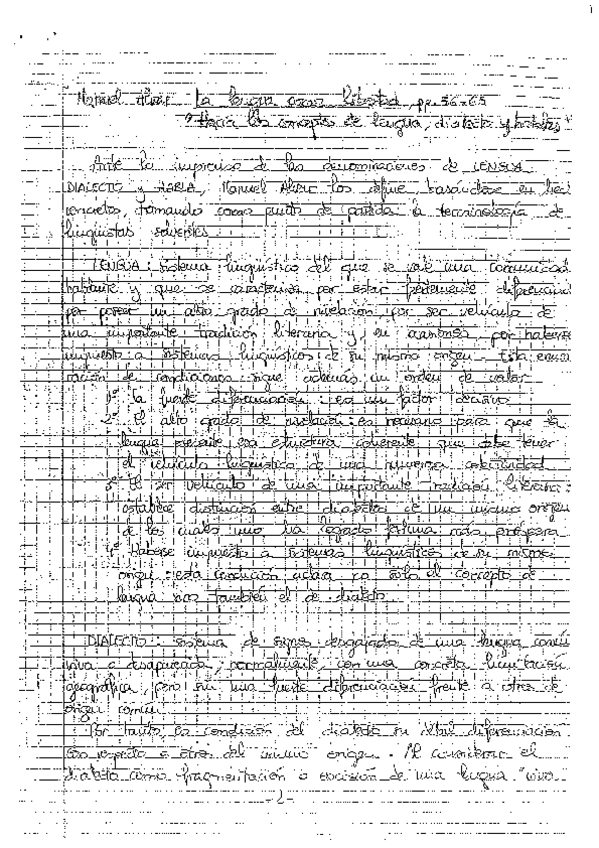 Manuel Alvar La lengua como libertad, pp. 56-65
"Hacia los conceptos de lengua, dialecto y hablas"
Ante la imprecisa de las denominaciones de LENGUA
DIALECTO y HABLA, Manuel Alvar los define basándose en
concretos, tomando como punto de partida la terminología de
lingüistas solventes.
LENGUA: sistema lingüístico del que se vale una comunidad
hablante y que se caracteriza por estar fuertemente diferenciado
por poseer un alto grado de nivelación, por ser vehículo de
una importante tradición literaria y, en ocasiones, por haberse
impuesto a sistemas lingüísticos de su mismo origen. Esta
ración de condiciones sigue además un orden de valor
1º la fuerte diferenciación: es un factor decisivo
2º El alto grado de nivelación: es necesario para que la
lengua presente esa estructura coherente que debe tener
el vehículo lingüístico de una numerosa colectividad
3º El ser vehículo de una importante tradición literaria:
establece distinción entre dialectos de un mismo origen
de los cuales uno ha logrado fortuna más próspera
4º Haberse impuesto a sistemas lingüísticos de su mismo
origen: esta condición aclara no sólo el concepto de
lengua sino también el de dialecto
DIALECTO: sistema de signos desgajado de una lengua común
viva o desaparecida; normalmente, con una concreta limitación
geográfica, pero sin una fuerte diferenciación frente a otros de
origen común.
Por tanto, la condición del dialecto su débil diferenciación
con respecto a otros del mismo origen. Al considerar el
dialecto como fragmentación o escisión de una lengua "viva
- 2 -